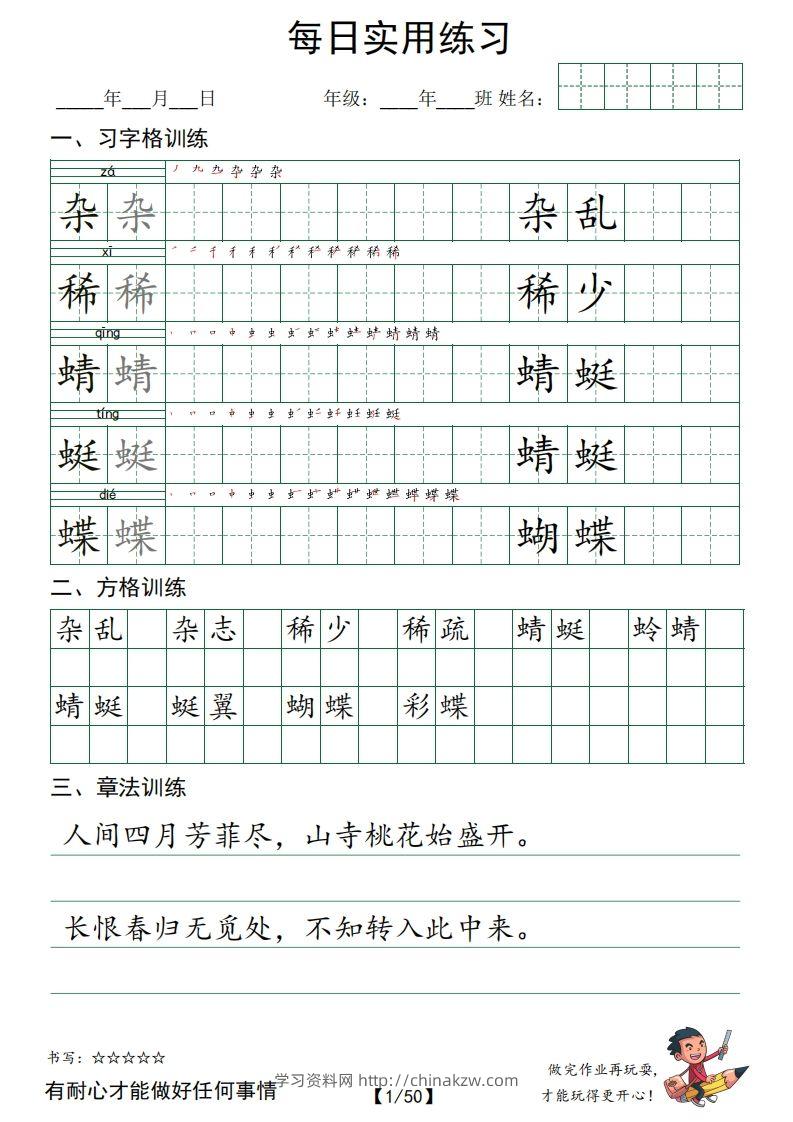 每日实用练习
_____年___月___日 年级：____年____班 姓名：
一、习字格训练
zá
杂 杂 杂 乱
xī
稀 稀 稀 少
qīng
蜻 蜻 蜻 蜓
tíng
蜓 蜓 蜻 蜓
dié
蝶 蝶 蝴 蝶
二、方格训练
杂 乱 杂 志 稀 少 稀 疏 蜻 蜓 蛉 蜻
蜻 蜓 蜓 翼 蝴 蝶 彩 蝶
三、章法训练
人间四月芳菲尽，山寺桃花始盛开。
长恨春归无觅处，不知转入此中来。
书写：☆☆☆☆☆
有耐心才能做好任何事情
学习资料网 http://chinakzw.com
【1/50】
做完作业再玩耍，
才能玩得更开心！